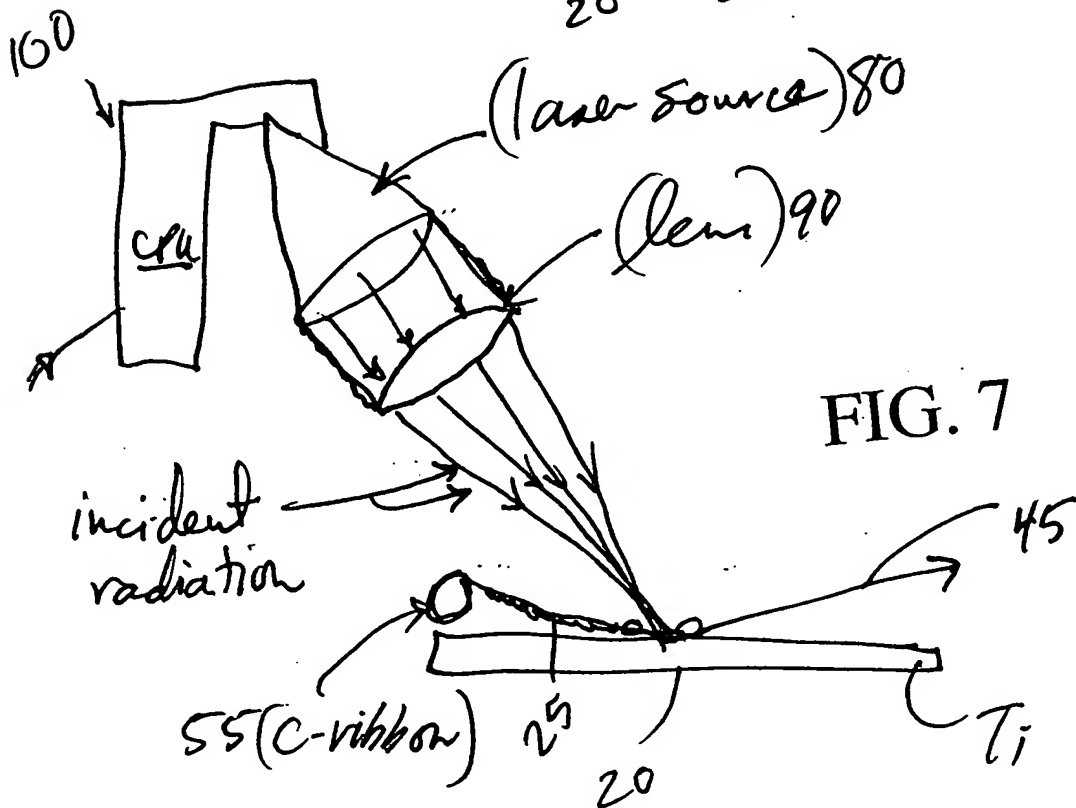 20
100
(laser source) 80
(lens) 90
CPU
FIG. 7
incident
radiation
45
55 (C-ribbon)
25
20
Ti